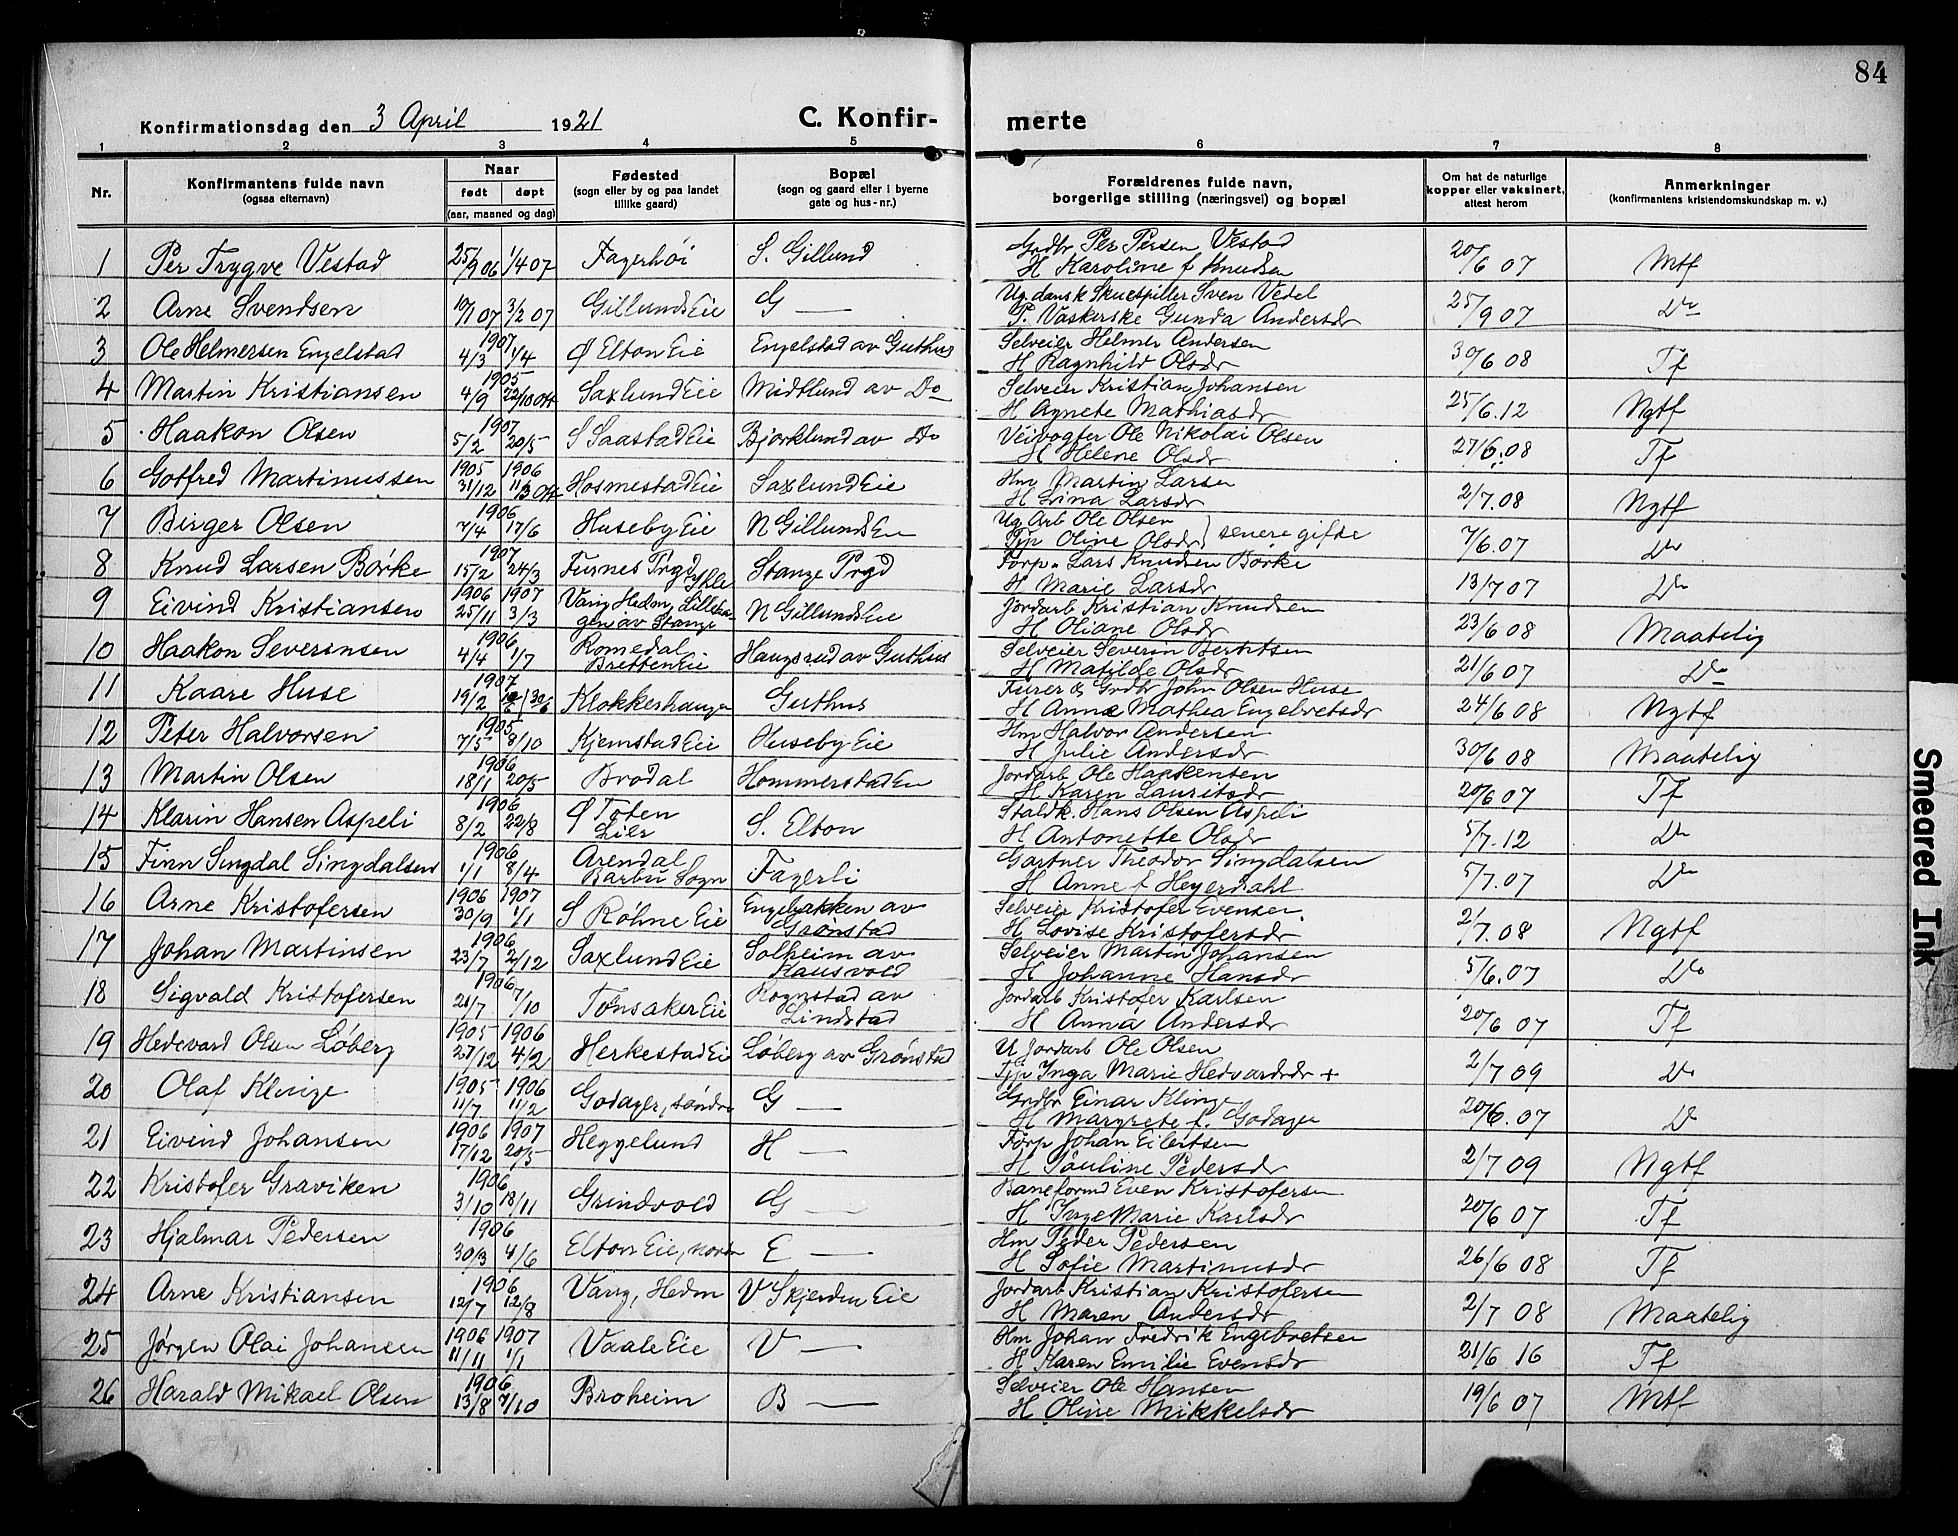 84
Konfirmationsdag den 3 April 1921
C. Konfirmerte
1 2 3 4 5 6 7 8
Nr.
Konfirmantens fulde navn
(ogsaa efternavn)
Naar
født døpt
(aar, maaned og dag)
Fødested
(sogn eller by og paa landet
tillike gaard)
Bopæl
(sogn og gaard eller i byerne
gate og hus-nr.)
Forældrenes fulde navn,
borgerlige stilling (næringsvei) og bopæl
Om hat de naturlige
kopper eller vaksinert,
attest herom
Anmerkninger
(konfirmantens kristendomskundskap m. v.)
1 Per Trygve Vestad 25/9 06 1/4 07 Fagerhøi S. Gillund Grdbr Per Persen Vestad
H Karoline f Knudsen 20/6 07 Mtf
2 Arne Svendsen 10/1 07 3/2 07 Gillunds Eie G — Ug. dansk Skuespiller Sven Vedel
P. Vaskerske Gunda Andersdr 25/9 07 Do
3 Ole Helmersen Engelstad 1907 4/3 1/4 Ø Elton Eie Engelstad av Guthus Selveier Helmer Andersen
H Ragnhild Olsdr 30/6 08 Tf
4 Martin Kristiansen 1905 4/9 22/10 Saxlund Eie Midtlund av Do Selveier Kristian Johansen
H Agnete Mathiasdr 25/6.12 Ngtf
5 Haakon Olsen 1907 5/2 20/5 S Saastad Eie Bjørklund av Do Veivogter Ole Nikolai Olsen
H Helene Olsdr 27/6.08 Tf
6 Gotfred Martinussen 1905 1906 31/12 11/3 Hosmestad Eie Saxlund Eie Hm Martin Larsen
H Lina Larsdr 2/7.08 Ngtf
7 Birger Olsen 1906 7/4 17/6 Huseby Eie N Gillunds En Ug Arb Ole Olsen
Tjp Oline Olsdr } senere gifte 7/6.07 Do
8 Knud Larsen Børke 1907 15/2 24/3 Furnes Prgd Stange Prgd Forp. Lars Knudsen Børke
H Marie Larsdr 13/7 07 Do
9 Eivind Kristiansen 1906 1907 25/11 3/3 Vang Hedm, Lilleha-
gen av Stange N Gillunds Eie Jordarb Kristian Knudsen
H Oliane Olsdr 23/6 08 Maatelig
10 Haakon Seversen 1906 4/4 1/7 Romedal
Bretten Eie Haugsrud av Guthus Selveier Severin Berntsen
H Matilde Olsdr 21/6 07 Do
11 Kaare Huse 1907 19/2 30/6 Klokkerhaugen Guthus Furer & Grdbr John Olsen Huse
H Anna Mathea Engebretsdr 24/6 08 Ngtf
12 Peter Halvorsen 1905 7/5 8/10 Kjemstad Eie Huseby Eie Hm Halvor Andersen
H Julie Andersdr 30/6 08 Maatelig
13 Martin Olsen 1906 18/1 20/5 Brodal Hommerstad En Jordarb Ole Haakensen
H Karen Lauritsdr 20/6 07 Tf
14 Klarin Hansen Aspeli 1906 8/2 22/8 Ø Toten
Lier S. Elton Staldk. Hans Olsen Aspeli
H Antonette Olsdr 5/7.12 Do
15 Finn Singdal Singdalsen 1906 1/1 8/4 Arendal
Barbu Sogn Fagerli Gartner Theodor Singdalsen
H Anne f Heyerdahl 5/7.07 Do
16 Arne Kristofersen 1906 1907 30/9 1/1 S Røhne Eie Engebakken av
Grønstad Selveier Kristofer Evensen
H Lovise Kristofersdr 2/7.08 Ngtf
17 Johan Martinsen 1906 23/7 2/12 Saxlund Eie Solheim av
Hausvold Selveier Martin Johansen
H Johanne Hansdr 5/6.07 Do
18 Sigvald Kristofersen 1906 21/7 7/10 Tønsaker Eie Rognstad av
Lindstad Jordarb Kristofer Karlsen
H Anna Andersdr 20/6 07 Tf
19 Hedevard Olsen Løberg 1905 1906 27/12 4/2 Herkestad Ei Løberg av Grønstad U Jordarb Ole Olsen
Tjp Inga Marie Hedvardsdr + 2/7 09 Do
20 Olaf Klinge 1905 1906 11/7 11/2 Godager, søndre G — Grdbr Einar Klinge
H Margrete f. Godager 20/6.07 Do
21 Eivind Johansen 1906 1907 17/12 20/5 Heggelund H — Forp Johan Eilertsen
H Pauline Pedersdr 2/7 09 Ngtf
22 Kristofer Graviken 1906 3/10 18/11 Grindvold G — Baneformd Even Kristofersen
H Inge Marie Karlsdr 20/6 07 Tf
23 Hjalmar Pedersen 1906 30/3 4/6 Elton Eie, nordre E — Hm Peder Pedersen
H Sofie Martinusdr 26/6 08 Tf
24 Arne Kristiansen 1906 12/7 12/8 Vang, Hedm V Skjerden Eie Jordarb Kristian Kristofersen
H Maren Andersdr 2/7 08 Maatelig
25 Jørgen Olai Johansen 1906 1907 11/11 1/1 Vaale Eie V — Hm Johan Fredrik Engebretsen
H Karen Emilie Evensdr 21/6 16 Tf
26 Harald Mikael Olsen 1906 13/8 7/10 Broheim B — Selveier Ole Hansen
H. Oline Mikkelsdr 19/6 07 Mtf
Smeared Ink